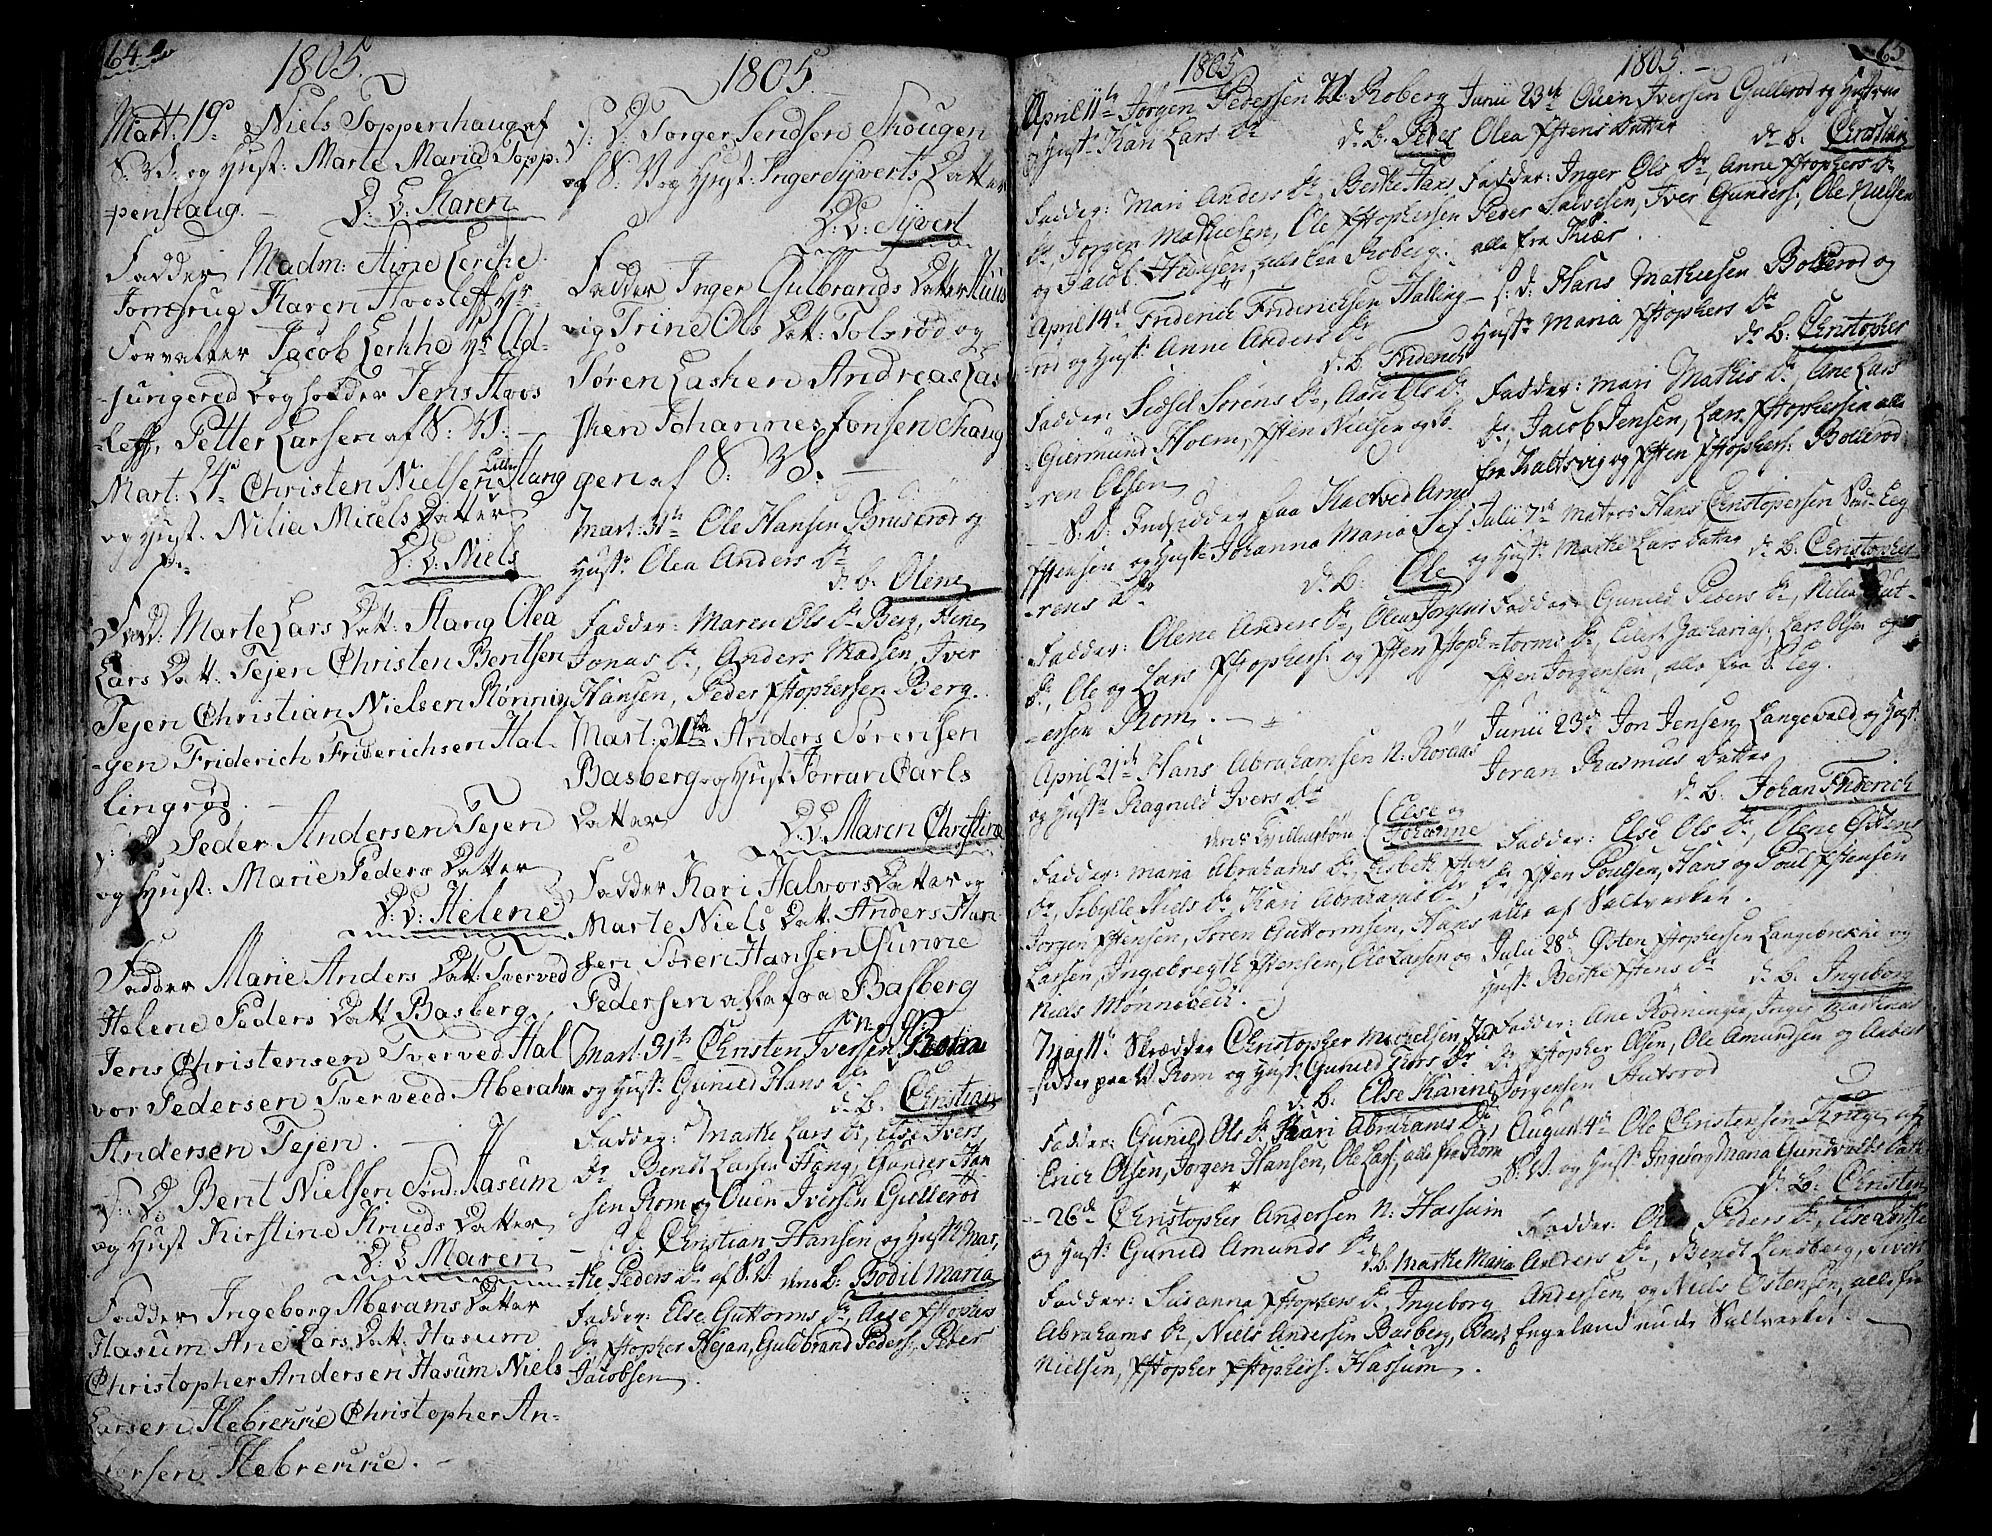 64.
1805.
Mart: 19de Niels Toppenhaug af
S: V: og Hust: Marte Maria Topp
penhaug.
D: B: Karen
Fadder Madm: Anne Lerche
Jomfrue Karen Hvosleff Hr
Forvalter Jacob Lerche Hr Ad-
jungered Bogholder Jens Hvos
leff, Petter Larsen af S: V:
Mart: 24de Christen Nielsen Lille Stang
og Hust: Nilia Micels Datter
D: B: Niels
Fadd: Marte Lars Datt: Stang Olea
Lars Datt: Tejen Christen Bentsen
Tejen Christian Nielsen Rønnin
gen Friderich Friderichsen Hal-
lingrød.
S: D: Peder Andersen Tejen
og Hust: Marie Peders Datter
D: B: Helene
Fadder Marie Anders Datt: Tverved
Helene Peders Datt: Basberg,
Jens Christensen Tverved Hal
vor Pedersen Tverveed Aberahm
Andersen Tejen.
S: D: Bent Nielsen Sønd: Aasum
og Hust Kirstine Knuds Datter
D: B Maren
Fadder Ingeborg Aberams Datter
Hasum Ane Lars Datt: Hasum
Christopher Andersen Hasum Niels
Larsen Hebrenne Christopher An-
dersen Hebrenne.
1805.
S: D: Torger Sendsen Skougen
af S: V og Hust: Inger Syverts Datter
D: B: Syvert
Fadder Inger Gulbrands Datter Huus
vig Trine Ols Datt: Tolsrød og
Søren Lasken Andreas Las
ken Johannes Jonsen Skaug
gen af S: V.
Mart: 31te Ole Hansen Bruserød og
Hustr Olea Anders Dr
d: b: Olene
Fadder: Maren Ols Dr Berg, Stine
Jonas Dr, Anders Madsen, Iver
Hansen, Peder Xstophersen Berg.
Mart: 31te Anders Sørensen
Basberg og Hust Jorran Carls
Datter
D: B: Maren Christine
Fadder Kari Halvors Datter og
Marte Niels Datt: Anders Han
sen Søren Hansen Gunne
Pedersen alle fra Basberg
Mart: 31te Christen Iversen
og Hust: Gunild Hans Dr
d: b: Christian
Fadder: Marthe Lars Dr, Else Ivers
Dr Bendt Larsen Haug, Gunder Han
sen Rom og Ouen Iversen Gullerød
S: d: Christian Hansen og Hustr Mar,
the Peders Dr af S: V. deres b: Bodil Maria
Fadder: Else Guttorms Dr, Aase Xstophers
Dr Xstopher Hejan, Guldbrand Peders: Peder
Jacobsen.
1805
April 11te Jørgen Pedersen N: Roberg
og Hust: Kari Lars Dr
d: B: Peder
Fadder: Mari Anders Dr, Berthe Hans
Dr, Jørgen Mathiesen, Ole Xstophersen
og Jacob Hansen, alle fra Roberg.
April 14de Friderich Friderichsen Halling-
rød og Hust: Anne Anders Dr
d: b: Friderich
Fadder: Sidsel Sørens Dr, Anne Ols Dr
Giermund Holm, Xsten Nielsen og Sø-
ren Olsen
S: D: Indsidder paa Kactved Arne
Xstensen og Hustr Johanna Maria Sef
rens Dr
d: B: Ole
Fadder: Olene Anders Dr, Olea Jørgens
Dr, Ole og Lars Xstophers: og Xsten Xstoph-
ersen Rom.
April 21de Hans Abrahamsen N: Roraas
og Hustr Ragnild Ivers Dr
deres Tvillingbørn Else og
Johanne
Fadder: Maria Abrahams Dr, Lisbeth Xstens
Dr, Sibylle Niels Dr Kari Abrahams Dr,
Jørgen Xstensen, Søren Guttormsen, Hans
Larsen, Ingebregth Xstensen, Ole Larsen og
Niels Mønnebech.
Maj 11te Skrædder Christopher Michelsen, Ind
sidder paa V: Rom og Hust: Gunild Lars Dr
d: b: Else Karine
Fadder: Gunild Ols Dr, Kari Abrahams Dr,
Erich Olsen, Jørgen Hansen, Ole Lars:, alle fra Rom
- 26de Christopher Andersen N: Hassum
og Hust: Gunild Amunds Dr
d: b: Marthe Maria
Fadder: Susanna Xstophers Dr, Ingeborg
Abrahams Dr, Niels Andersen Basberg, Bent
Nielsen, Xstopher Xstophers: Hassum.
65
1805.
Junii 23de Ouen Iversen Gullerød og Hustrue
Olea Xstens Datter
d: b. Christian
Fadder: Inger Ols Dr, Anne Xstophers Dr
Peder Salvesen, Iver Gunders:, Ole Nielsen
alle fra Kiær.
S: d: Hans Mathiesen Bollerød og
Hustr Maria Xstophers Dr
d: B: Christopher
Fadder: Mari Mathis Dr, Ane Lars
Dr, Jacob Jensen, Lars Xstophersen alle
fra Kaltsvig og Xsten Xstophers: Bollerød
Julii 7de Matros Hans Christopersen Sønd: Eeg
og Hustr Marthe Lars Datter d: B: Christopher
Fadder: Gunild Peders Dr, Nilia Gut-
torms Dr, Eilert Zacharias: Lars Olsen og
Xsten Jørgensen, alle fra S: Eeg.
Junii 23de Jon Jensen Langevald og Hust:
Joran Rasmus Datter
d: B: Johan Friderich
Fadder: Else Ols Dr, Olene Østens
Dr Xsten Poulsen, Hans og Poul Xstensen
alle af Saltverken.
Julii 28de Østen Xstophersen Langeønskie og
Hust: Berthe Xstens Dr
d: b: Ingeborg
Fadder: Ane Rødningen, Inger Mortens
Dr Xstopher Olsen, Ole Amundsen og Anders
Jørgensen Stutsrød
August 4de Ole Christensen Krage af
S: V. og Hustr Ingeborg Maria Gundvalds Datt:
d: b: Christen
Fadder: Peders Dr, Else Birthe
Anders Dr, Bendt Lindberg, Sivert
Andersen, og Niels Østensen, alle fra
Engeland unde Saltverket.